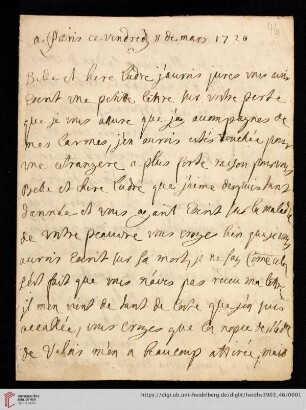 a Paris ce vendredy 8 de mars 1726
46
Belle et chere Ludre j'aurois jures vous avoir
Escrit une petite lettre sur votre perte
que je vous assure que j'ay acompagnes de
mes larmes, j'en aurois estes touchée pour
une etrangere a plus forte raison pour vous
Belle et chere Ludre que j'aime depuis tant
d'année et vous ayant Escrit sur la maladie
de votre peauvre vous croyes bien que je vous
aurois Escrit sur sa mort, je ne say Come cela
s'est fait que vous n'aves pas receu ma lettre
il m'en vient de tant de Costé que j'en suis
accablée, vous croyes que la nopce de
de Valois m'en a beaucoup attirée, mais
https://digi.ub.uni-heidelberg.de/diglit/heidhs3903_46/0001